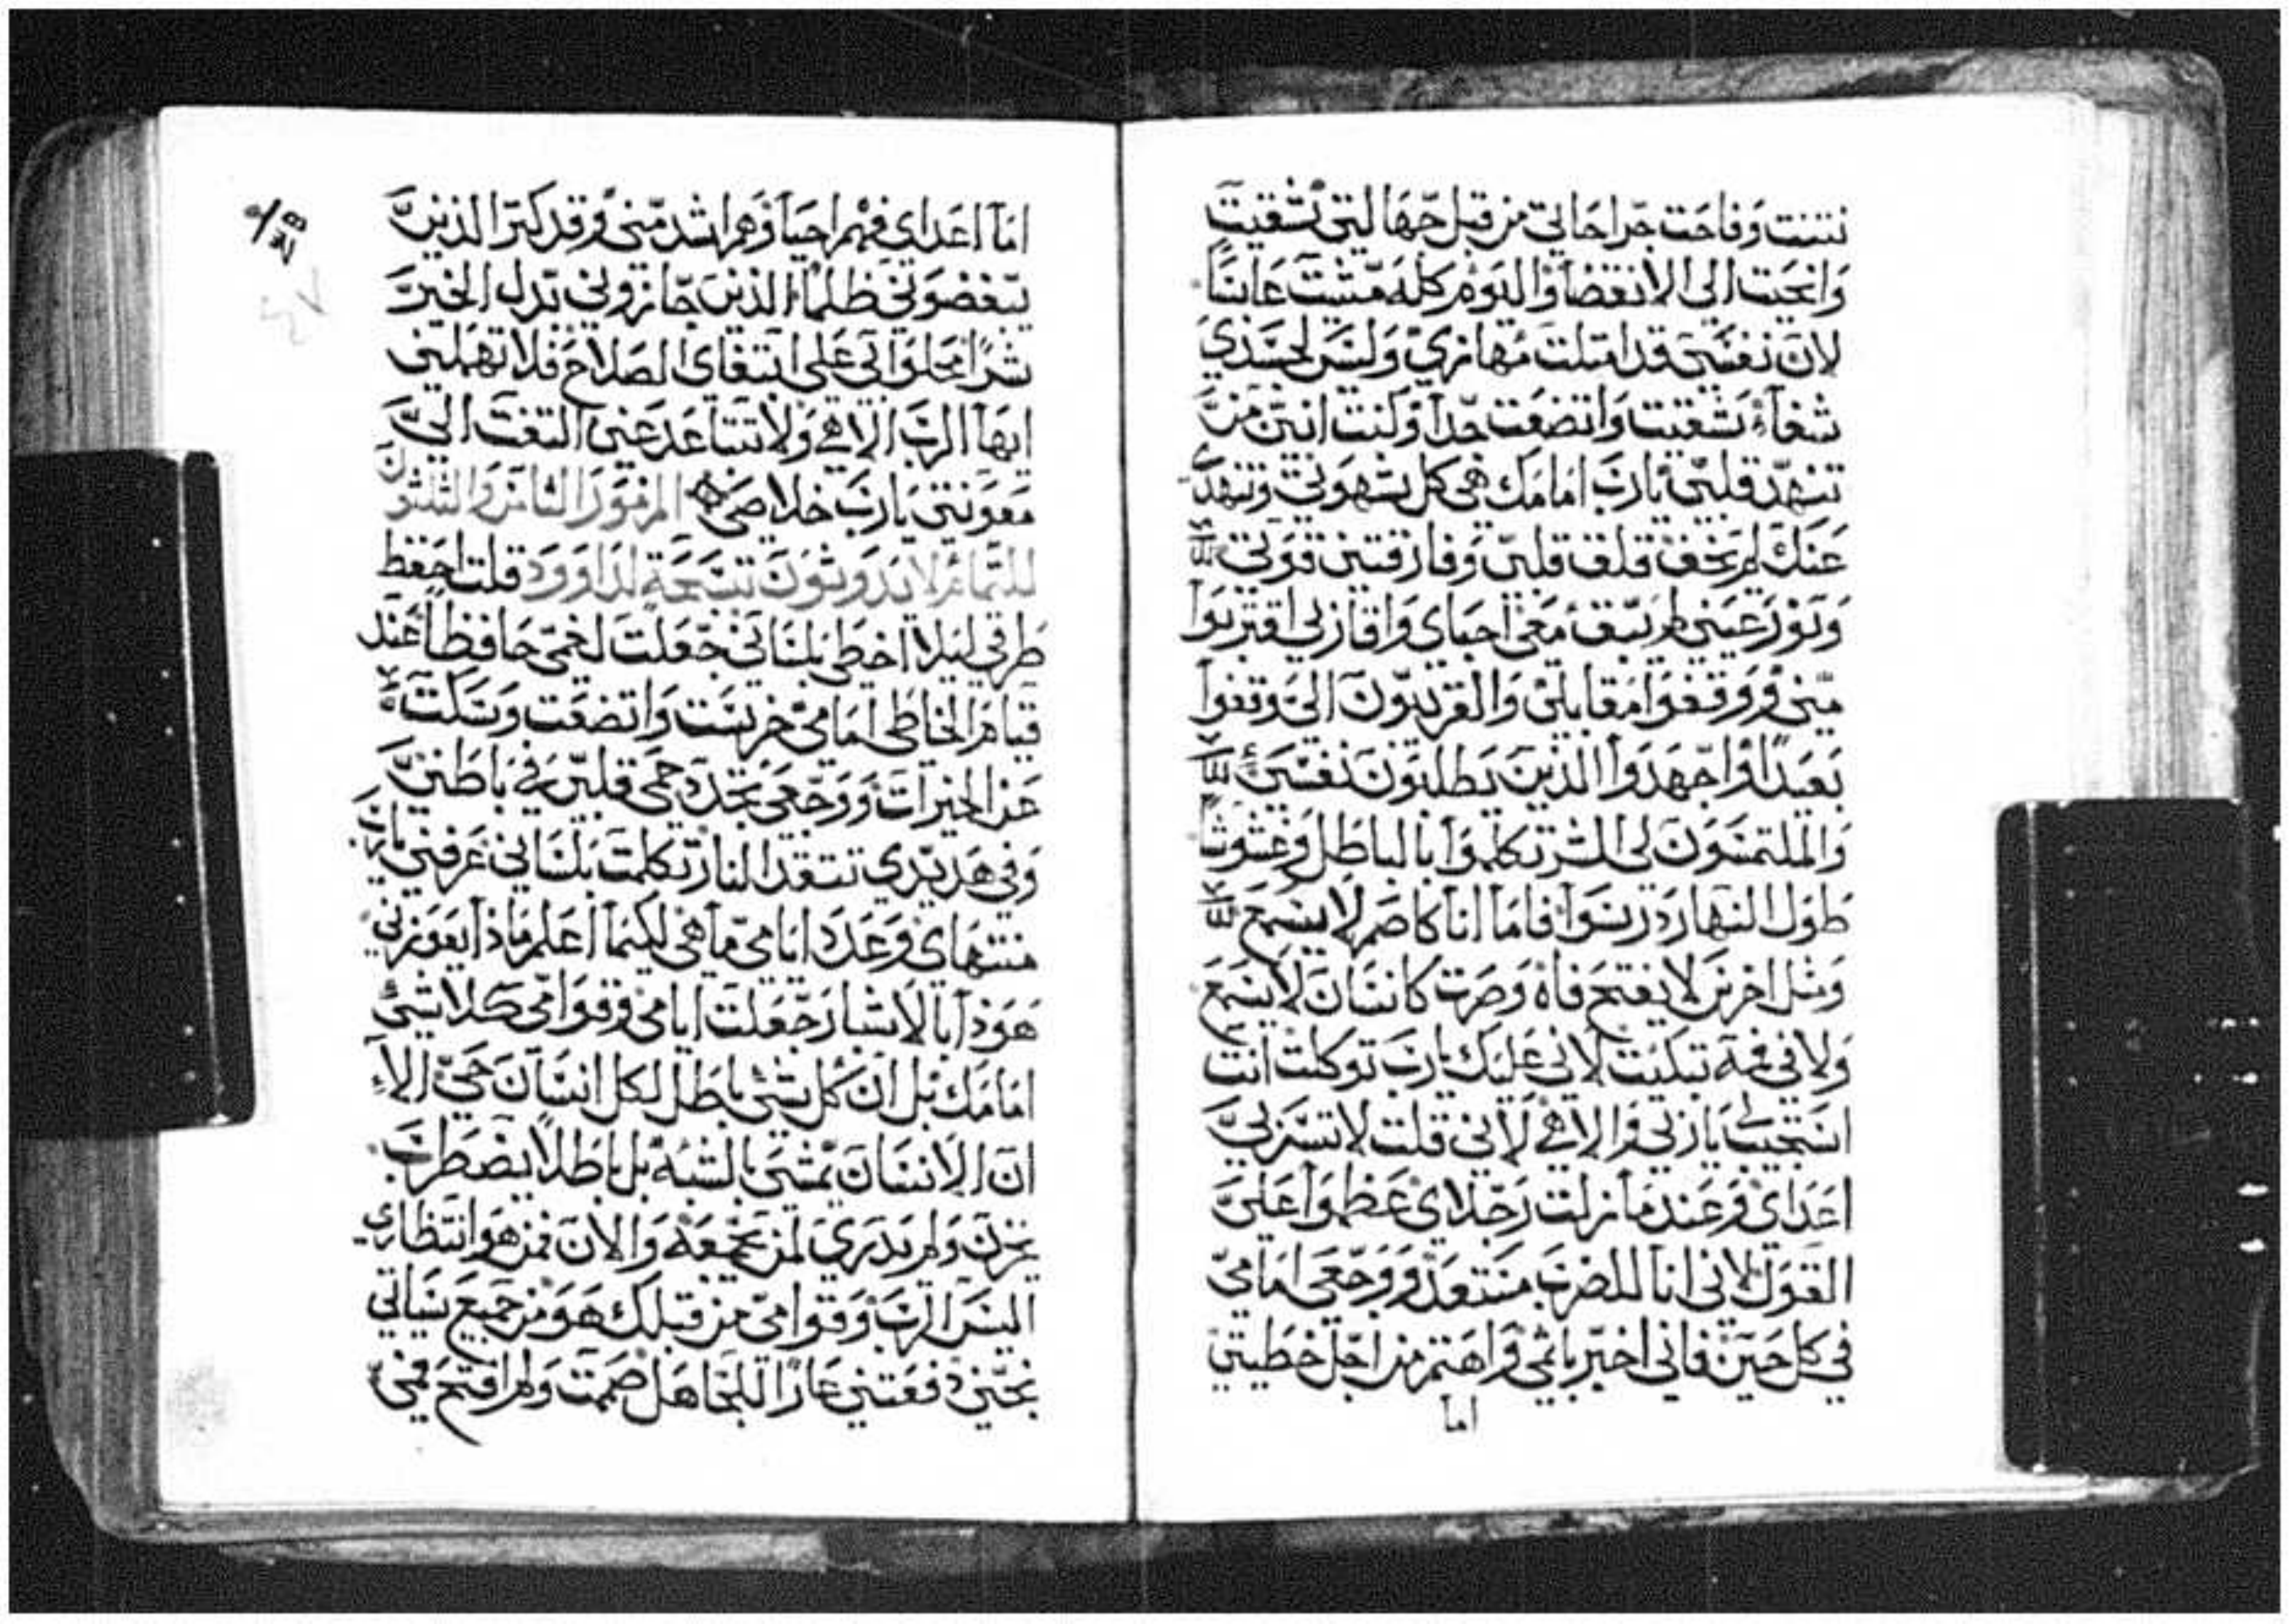 نتنت وفاحت جراحاتي من قبل جهالتي شقيت
وانحيت الي الانقضا واليوم كله مشيت عابسًا
لان نفسي قد امتلت مهازي وليس لجسدي
شفاء شقيت واتضعت جدا وكنت انين من
تنهد قلبي يارب امامك هي كل شهوتي وتنهدي
عنك لم يخف قلق قلبي وفارقتني قوتي
ونور عيني لم يبق معي احباي واقاربي اقتربوا
مني ووقفوا مقابلي والقريبون الي وقفوا
بعيدًا واجهدوا الذين يطلبون نفسي
والملتمسون لي الشر تكلموا بالباطل وغشوشا
طول النهار درسوا فاما انا كاصم لا يسمع
ومثل اخرس لا يفتح فاه وصرت كانسان لا يسمع
ولا في فمه تبكيت لاني عليك يارب توكلت انت
استجيب ياربي والاهي لاني قلت لا تسر بي
اعداي وعند ما زلت رجلاي عظموا علي
القول لاني انا للضرب مستعد ووجعي امامي
في كل حين فاني اخبر باثمي واهتم من اجل خطيتي
اما
اما اعداي فهم احيا وهم اشد مني وقد كتر الذين
يبغضوني ظلما الذين جازوني بدل الخير
شرا محلوا بي علي ابتغاي الصلاح فلا تهملني
ايها الرب الاهي ولا تتباعد عني التفت الي
معونتي يارب خلاصي المزمور الثامن والثلثون
للتمام لايدوثون تسبحة لداوود قلت احفظ
طرقي ليلا اخطي بلساني جعلت لفمي حافظا عند
قيام الخاطي امامي خرست واتضعت وسكت
عن الخيرات ووجعي تجدد حمي قلبي في باطني
وفي هديدي تتقد النار تكلمت بلساني عرفني يارب
منتهاي وعدد ايامي ما هي لكيما اعلم ماذا يعوزني
هوذا بالاشبار جعلت ايامي وقوامي كلا شي
امامك بل ان كل شي باطل لكل انسان حي الا
ان الانسان يمشي بالشبه بل باطلا يضطرب
يخزن ولم يدري لمن يجمعه والان فمن هو انتظاري
اليس الرب وقوامي من قبلك هو من جميع سياتي
نجيني دفعتني عارًا للجاهل صمت ولم افتح فمي